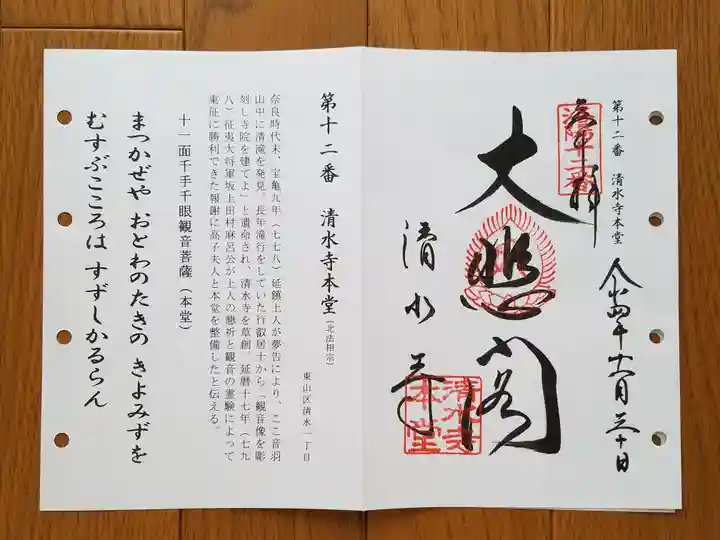 第十二番 清水寺本堂
奉拝
洛陽十二番
令和四年十一月三十日
大悲閣
清水寺
清水寺本堂
第十二番 清水寺本堂(北法相宗)
東山区清水一丁目
奈良時代末、宝亀九年(七七八)延鎮上人が夢告により、ここ音羽
山中に清滝を発見。長年滝行をしていた行叡居士から「観音像を彫
刻し寺院を建てよ」と遺命され、清水寺を草創。延暦十七年(七九
八)征夷大将軍坂上田村麻呂公が上人の懇祈と観音の霊験によって
東征に勝利できた報謝に高子夫人と本堂を整備したと伝える。
十一面千手千眼観音菩薩(本堂)
まつかぜや おとわのたきの きよみずを
むすぶこころは すずしかるらん